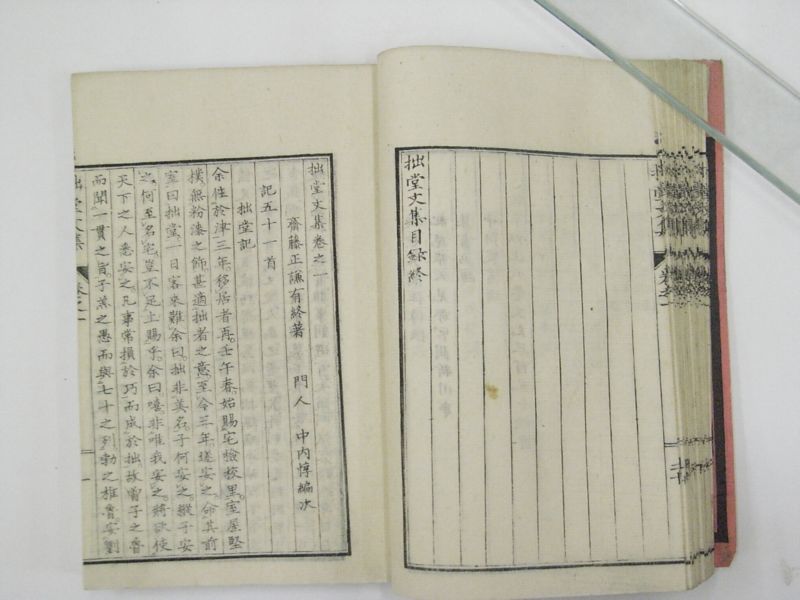 拙堂文集目録終
拙堂文集卷之一
齋藤正謙有終著 門人 中内惇編次
記五十一首
拙堂記
余住於津三年移居者再壬午春始賜宅檢校里室屋堅
樸無粉漆之飾甚適拙者之意至今三年遂安之命其前
室曰拙堂一日客來難余曰拙非美名子何安之縱子安
之何至名宅豈不足上賜乎余曰嘻非唯我安之將欲使
天下之人悉安之凡事常損於巧而成於拙故曾子之魯
而聞一貫之旨子羔之愚而與七十之列勃之椎魯安劉
拙堂文集
卷之一